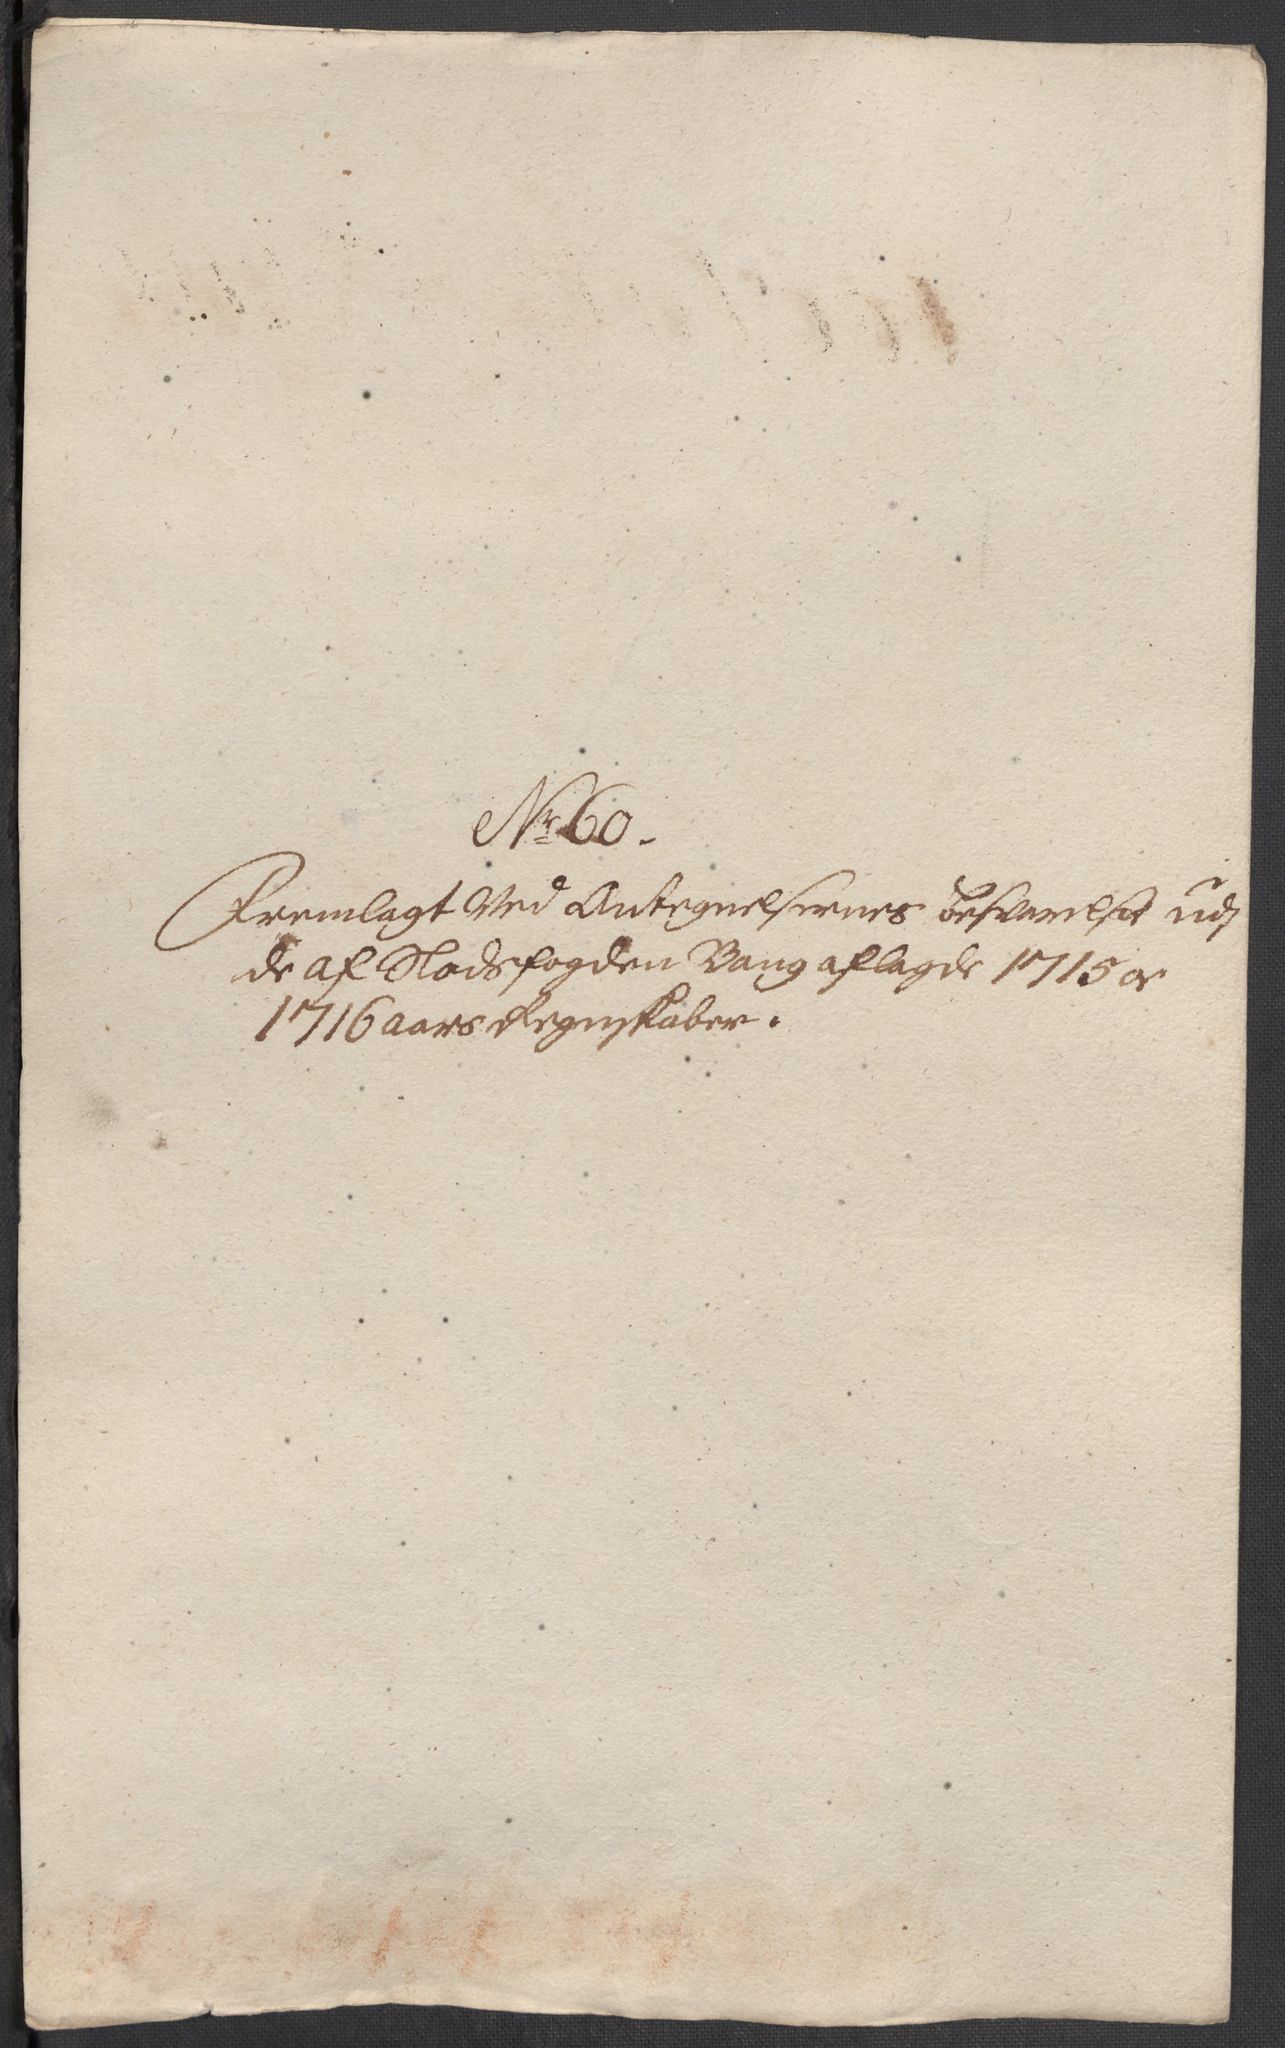 Nr 60.
Fremlagt Ved Antegnelsernes besvarelse udj
de af Slodsfogden Bang aflagde 1715 og
1716 aars Regnskaber.